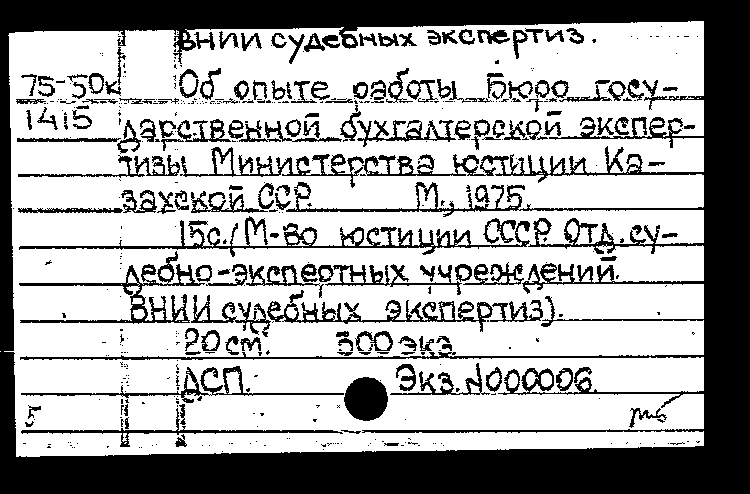 ВНИИ судебных экспертиз.
75-50к Об опыте работы Бюро госу-
1415 дарственной бухгалтерской экспер-
тизы Министерства юстиции Ка-
захской ССР. М., 1975.
15с. (М-во юстиции СССР. Отд. су-
дебно-экспертных учреждений.
ВНИИ судебных экспертиз).
20 см. 300 экз.
ДСП. Экз. №000006.
5